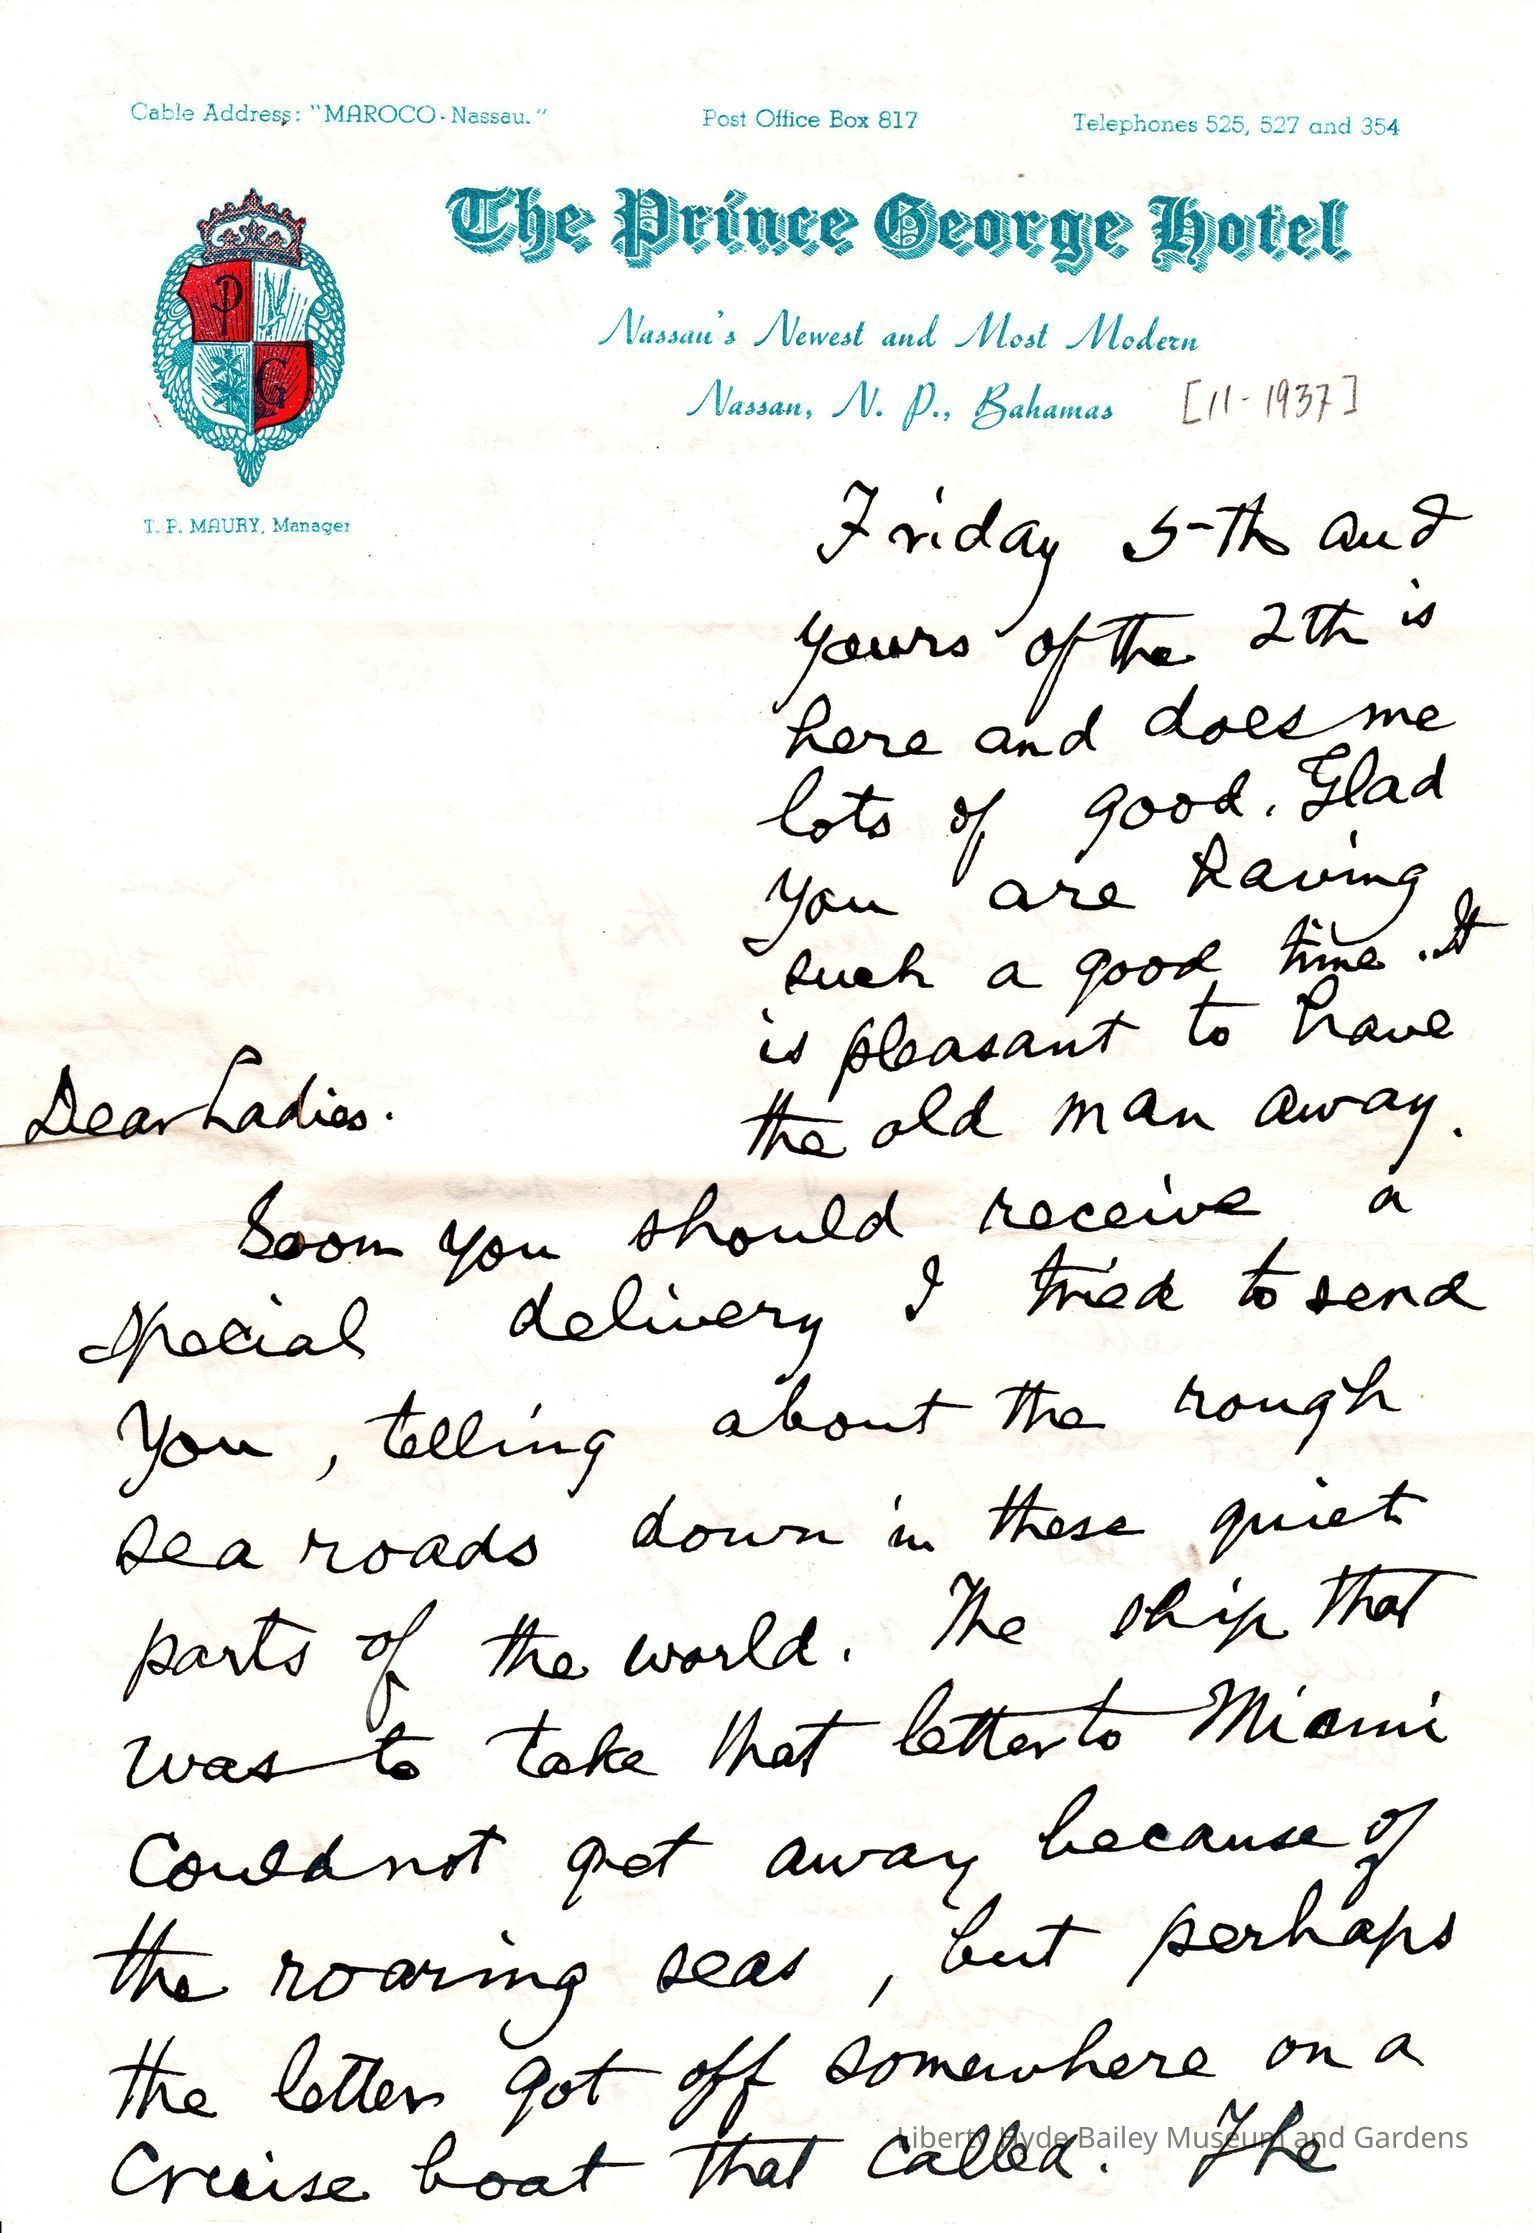 Cable Address: "MAROCO-Nassau."
Post Office Box 817
Telephones 525, 527 and 354
The Prince George Hotel
Nassau's Newest and Most Modern
Nassau, N. P., Bahamas [11-1937]
P
G
T. P. MAURY, Manager
Friday 5-th and
yours of the 2th is
here and does me
lots of good. Glad
you are having
such a good time. It
is pleasant to have
the old man away.
Dear Ladies.
Soon you should receive a
special delivery I tried to send
you, telling about the rough
sea roads down in these quiet
parts of the world. The ship that
was to take that letter to Miami
could not get away because of
the roaring seas, but perhaps
the letter got off somewhere on a
cruise boat that called. The
Liberty Hyde Bailey Museum and Gardens